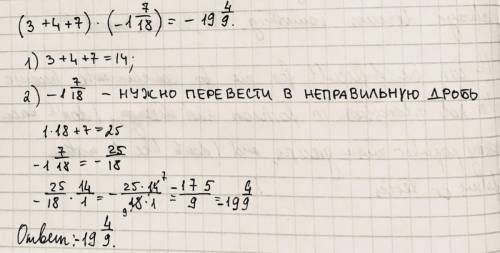 (3+4+7)·(-1 7/18) = -19 4/9.
1) 3+4+7=14;
2) -1 7/18 - НУЖНО ПЕРЕВЕСТИ В НЕПРАВИЛЬНУЮ ДРОБЬ
1·18+7=25
-1 7/18 = -25/18
-25/18 · 14/1 = -25·14 7/9 18·1 = -175/9 = -19 4/9
Ответ: -19 4/9.